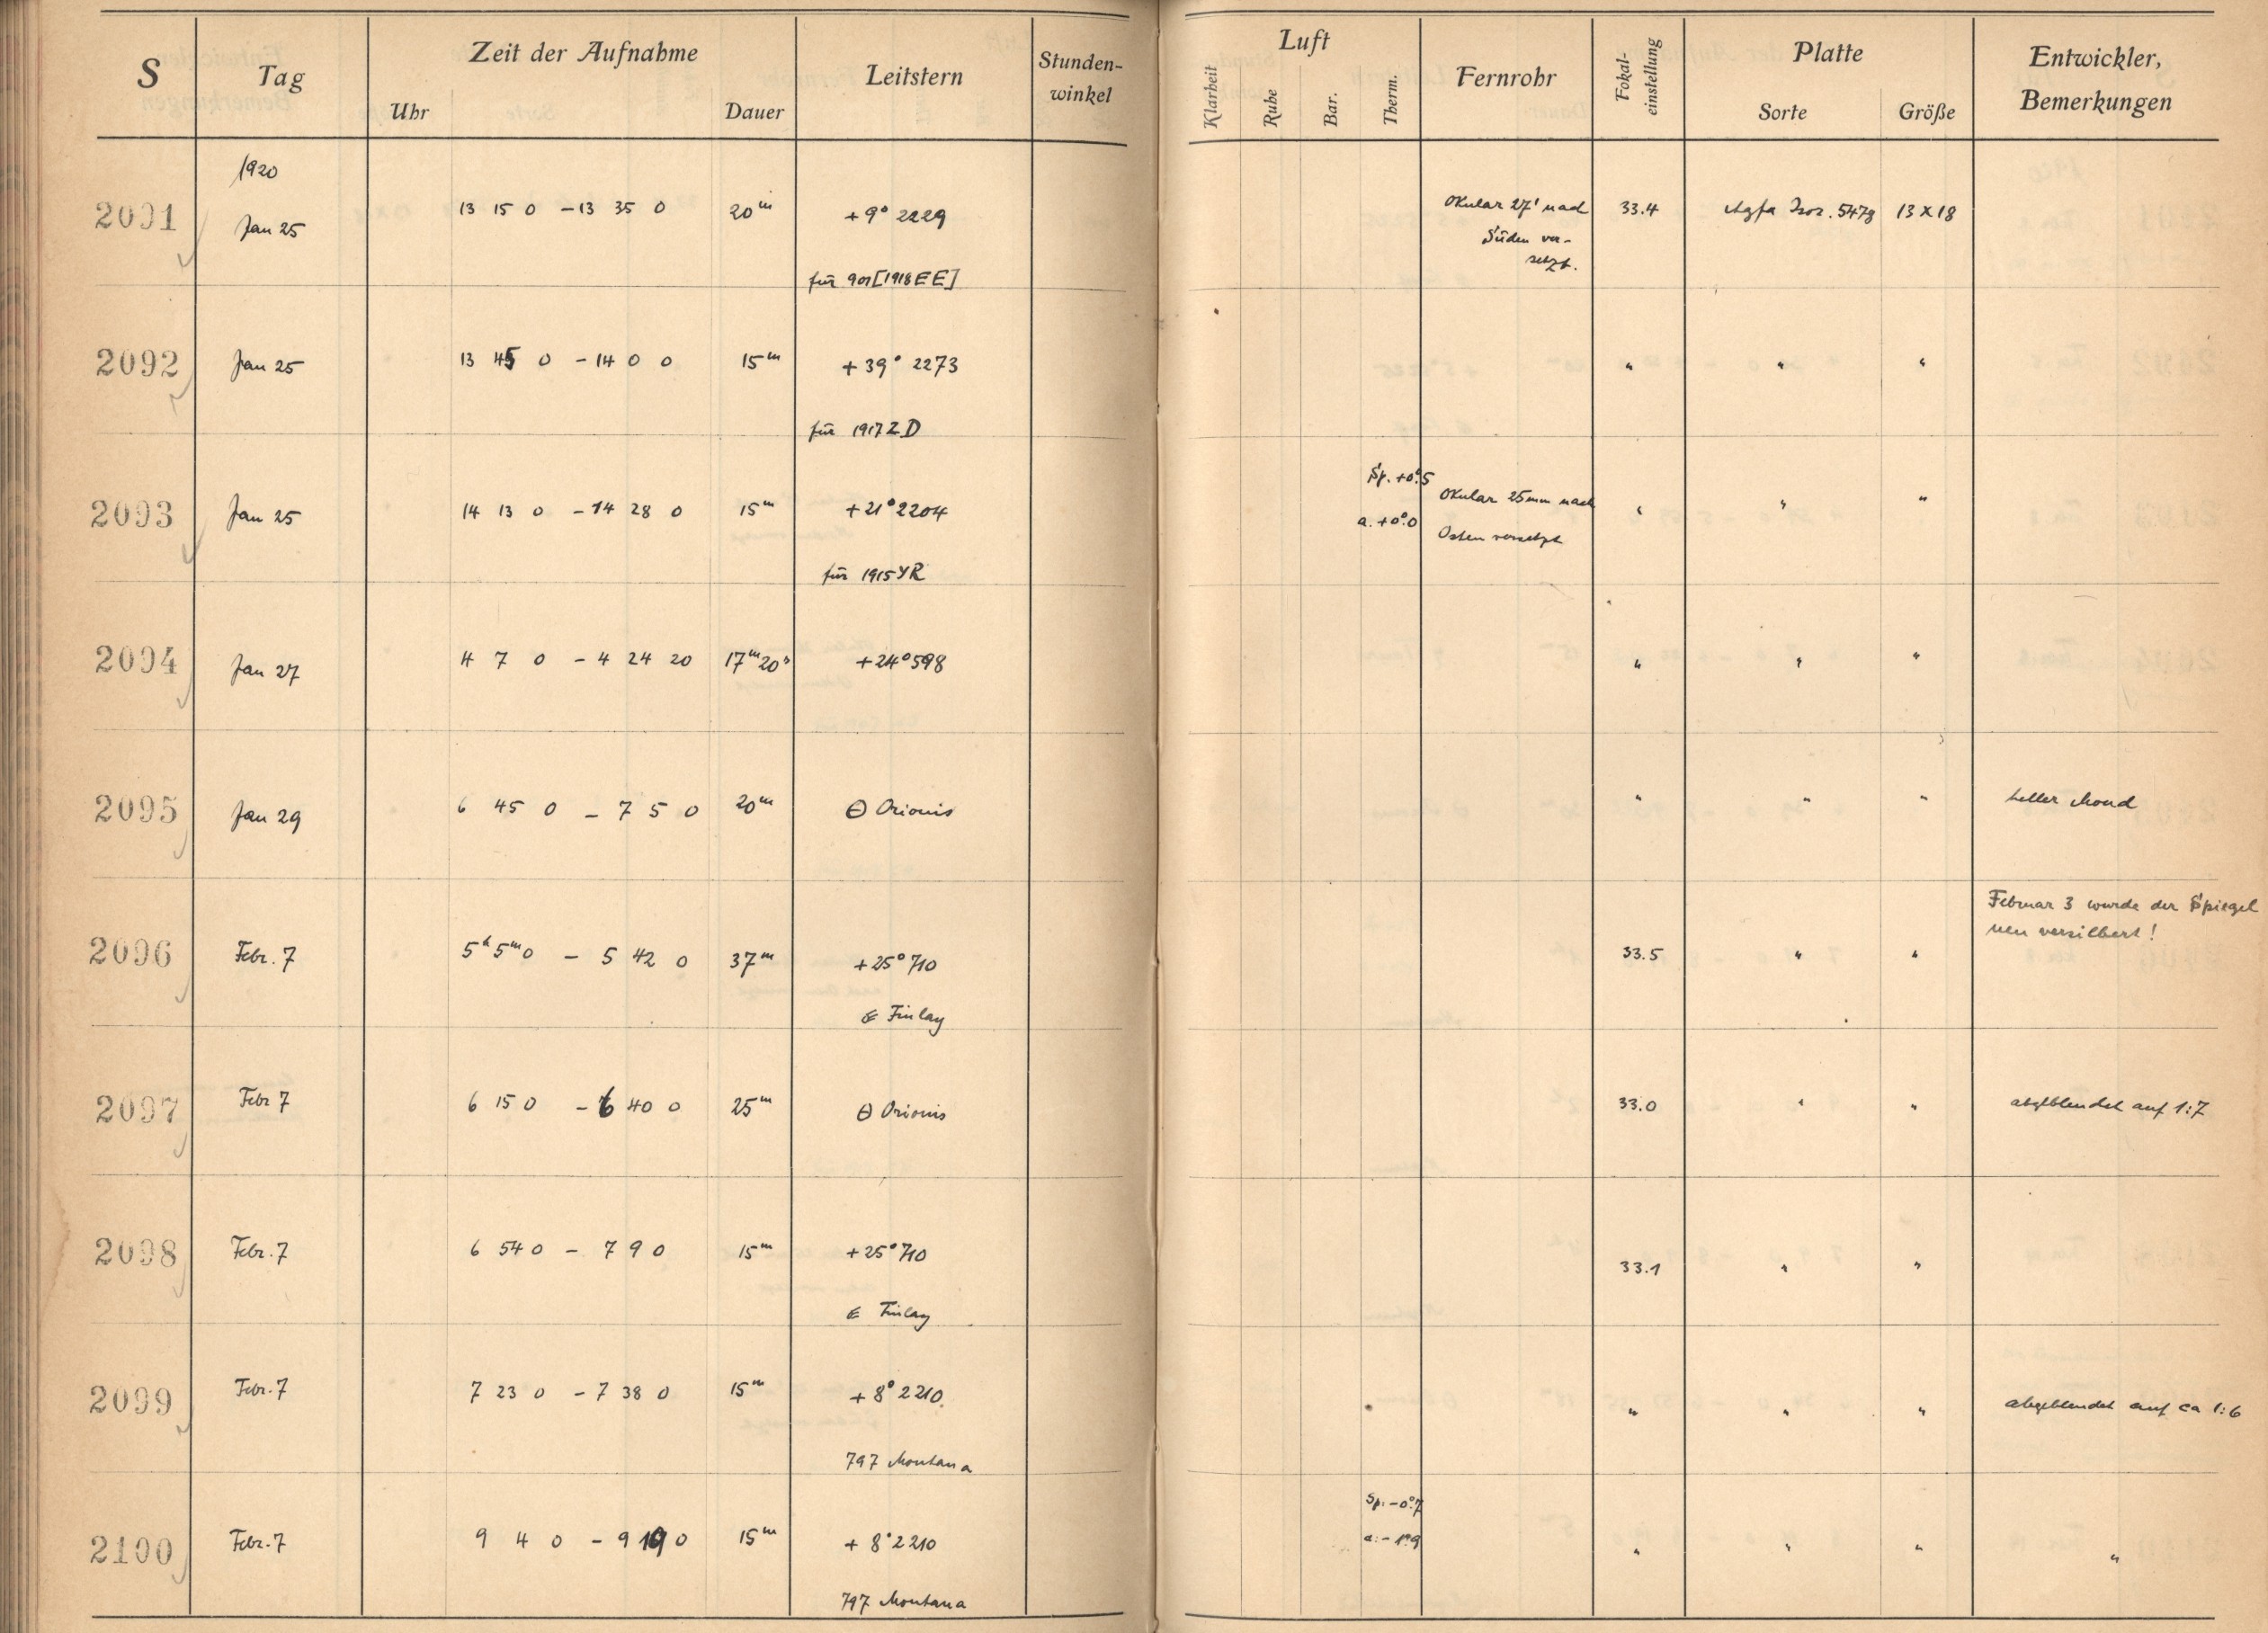 S Tag Zeit der Aufnahme Leitstern Stunden-winkel Luft Fernrohr Fokal-einstellung Platte Entwickler, Bemerkungen
Uhr Dauer Klarheit Ruhe Bar. Therm. Sorte Größe
1920
2091 Jan 25 13 15 0 - 13 35 0 20m +9° 2229 Okular 27' nach 33.4 Agfa Isor. 5479 13 x 18
Süden ver-
setzt.
für 901 [1918 EE]
2092 Jan 25 13 45 0 - 14 0 0 15m +39° 2273 " " "
für 1917 ZD
Sp. +0°.5
2093 Jan 25 14 13 0 - 14 28 0 15m +21° 2204 Okular 25mm nach " " "
a. +0°.0 Osten versetzt
für 1915 YR
2094 Jan 27 4 7 0 - 4 24 20 17m20s +24° 598 " " "
2095 Jan 29 6 45 0 - 7 5 0 20m Θ Orionis " " " heller Mond
Februar 3 wurde der Spiegel
neu versilbert!
2096 Febr. 7 5h 5m 0 - 5 42 0 37m +25° 710 33.5 " "
Finlay
2097 Febr 7 6 15 0 - 6 40 0 25m Θ Orionis 33.0 " " abgeblendet auf 1:7
2098 Febr. 7 6 54 0 - 7 9 0 15m +25° 710 33.1 " "
Finlay
2099 Febr. 7 7 23 0 - 7 38 0 15m +8° 2210 " " " abgeblendet auf ca 1:6
797 Montana
Sp: -0°.7
2100 Febr. 7 9 4 0 - 9 19 0 15m +8° 2210 a: -1°.9 " " " "
797 Montana